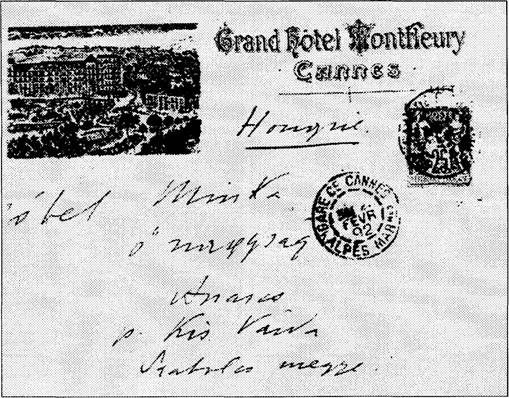 Grand Hôtel Montfleury
Cannes
Hongrie
25
Minka
GARE DE CANNES
FEVR
92
ALPES MAR
ő nagysag
Anarcs
p. Kis Várda
Szabolcs megye